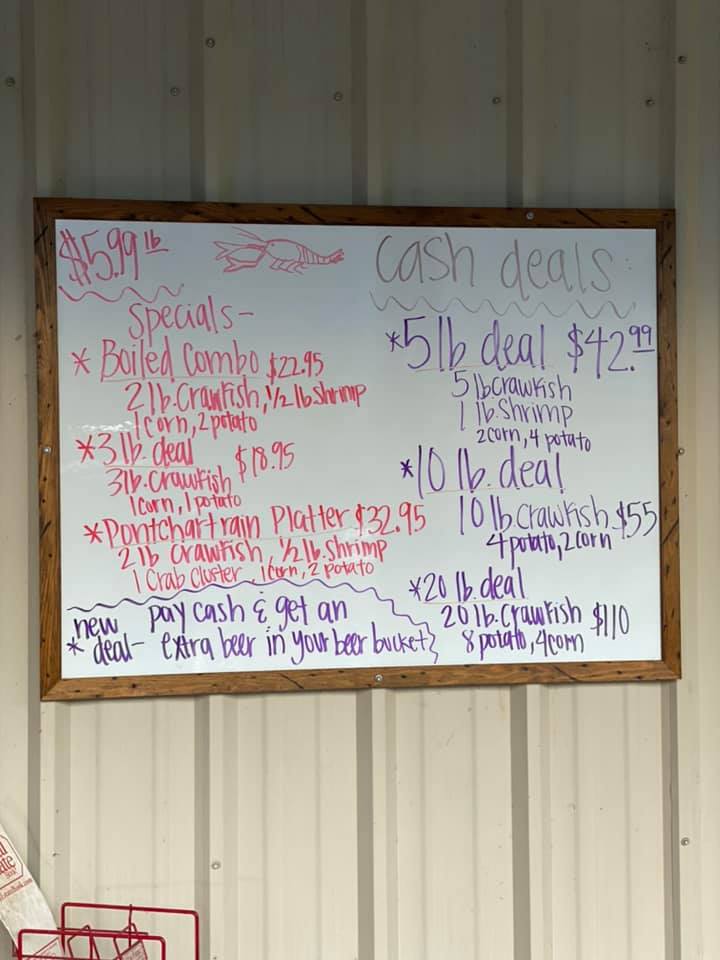 $5.99 lb
Specials-
* Boiled Combo $22.95
2 lb. Crawfish, 1/2 lb. Shrimp
1 corn, 2 potato
*3 lb. deal $18.95
3 lb. Crawfish
1 corn, 1 potato
*Pontchartrain Platter $32.95
2 lb Crawfish, 1/2 lb. Shrimp
1 Crab Cluster, 1 corn, 2 potato
new pay cash & get an
* deal- extra beer in your beer bucket
cash deals:
*5 lb deal $42.99
5 lb crawfish
1 lb. Shrimp
2 corn, 4 potato
*10 lb. deal
10 lb. crawfish $55
4 potato, 2 corn
*20 lb. deal
20 lb. Crawfish $110
8 potato, 4 corn